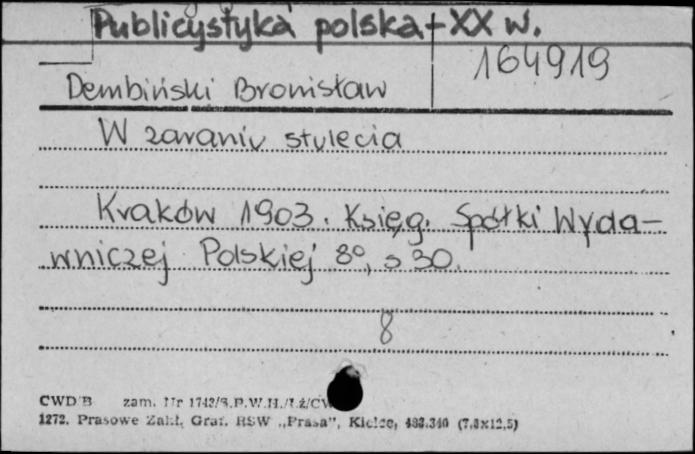 Publicystyka polska - XX w.
164919
Dembiński Bronisław
W zaraniu stulecia
Kraków 1903. Księg. Spółki Wyda-
wniczej Polskiej 8°, s 30.
8
CWD/B zam. Nr 1743/S.P.W.H./
1272. Prasowe Zakł. Graf. RSW „Prasa", Kielce, 488.340 (7,5x12,5)